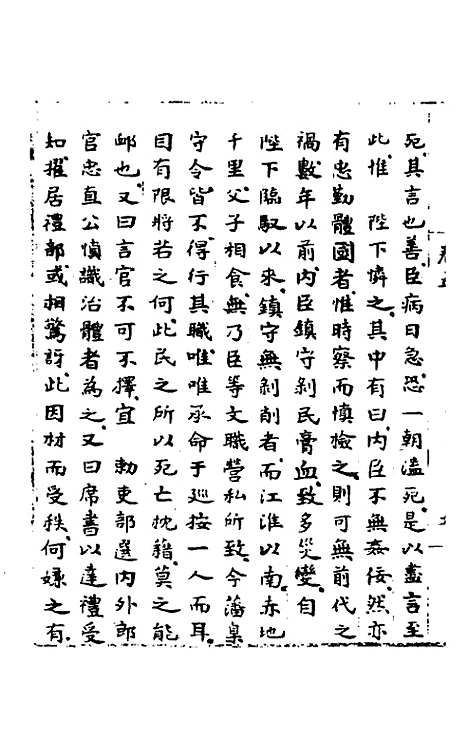 死其言也善臣病日急恐一朝溘死是以盡言至
此惟 陛下憐之其中有曰內臣不無姦佞然亦
有忠勤體國者惟時察而慎檢之則可無前代之
禍數年以前內臣鎮守剝民膏血致多災變自
陛下臨馭以來鎮守無剝削者而江淮以南赤地
千里父子相食無乃臣等文職營私所致今藩臬
守令皆不得行其職唯唯承命于巡按一人而耳
目有限將若之何此民之所以死亡枕藉莫之能
卹也又曰言官不可不擇宜 勅吏部選內外郎
官忠直公慎識治體者為之又曰席書以達禮受
知擢居禮部或相驚訝此因材而受秩何嫌之有